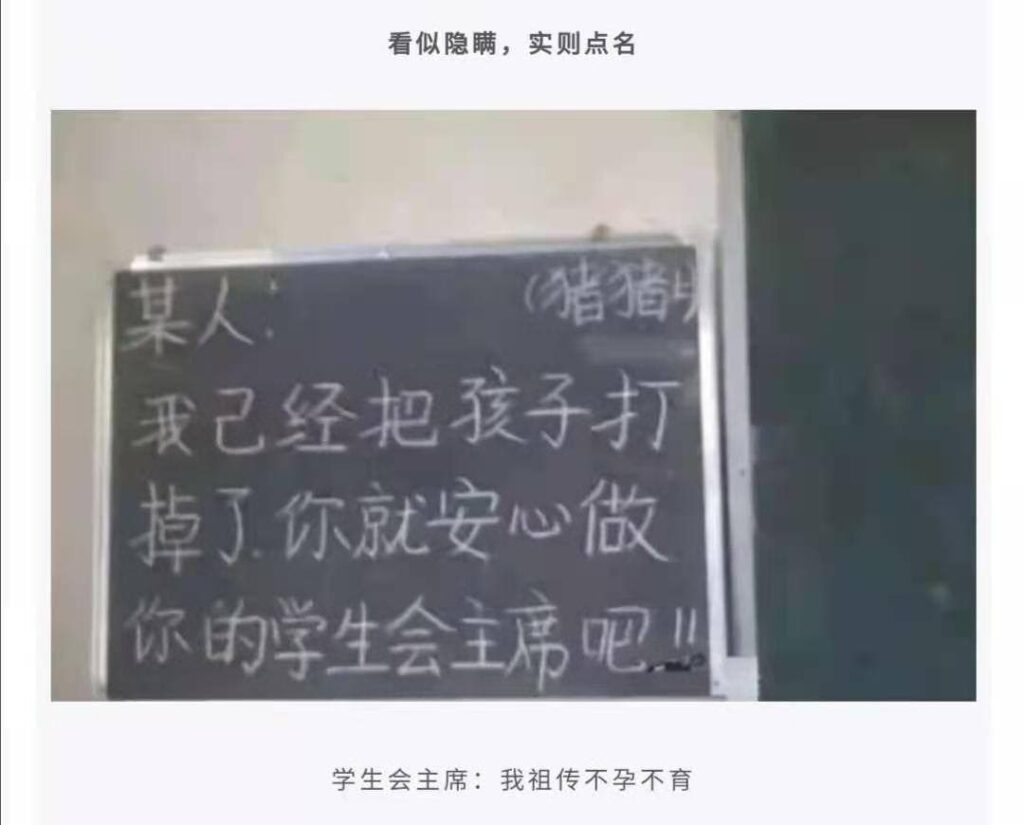 看似隐瞒，实则点名
某人：
（猪猪
我己经把孩子打
掉了你就安心做
你的学生会主席吧!!
学生会主席：我祖传不孕不育